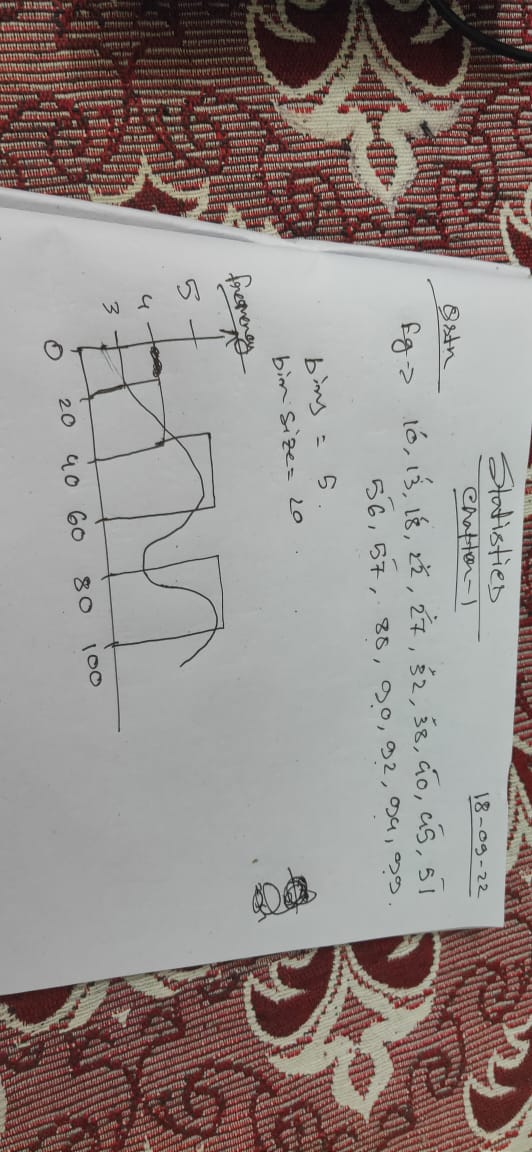 18-09-22
Statistics
Chapter-1
Eg → 10, 13, 18, 22, 27, 32, 38, 40, 45, 51
56, 57, 88, 90, 92, 94, 99.
bins = 5.
bin size = 20
frequency
5
4
3
0 20 40 60 80 100